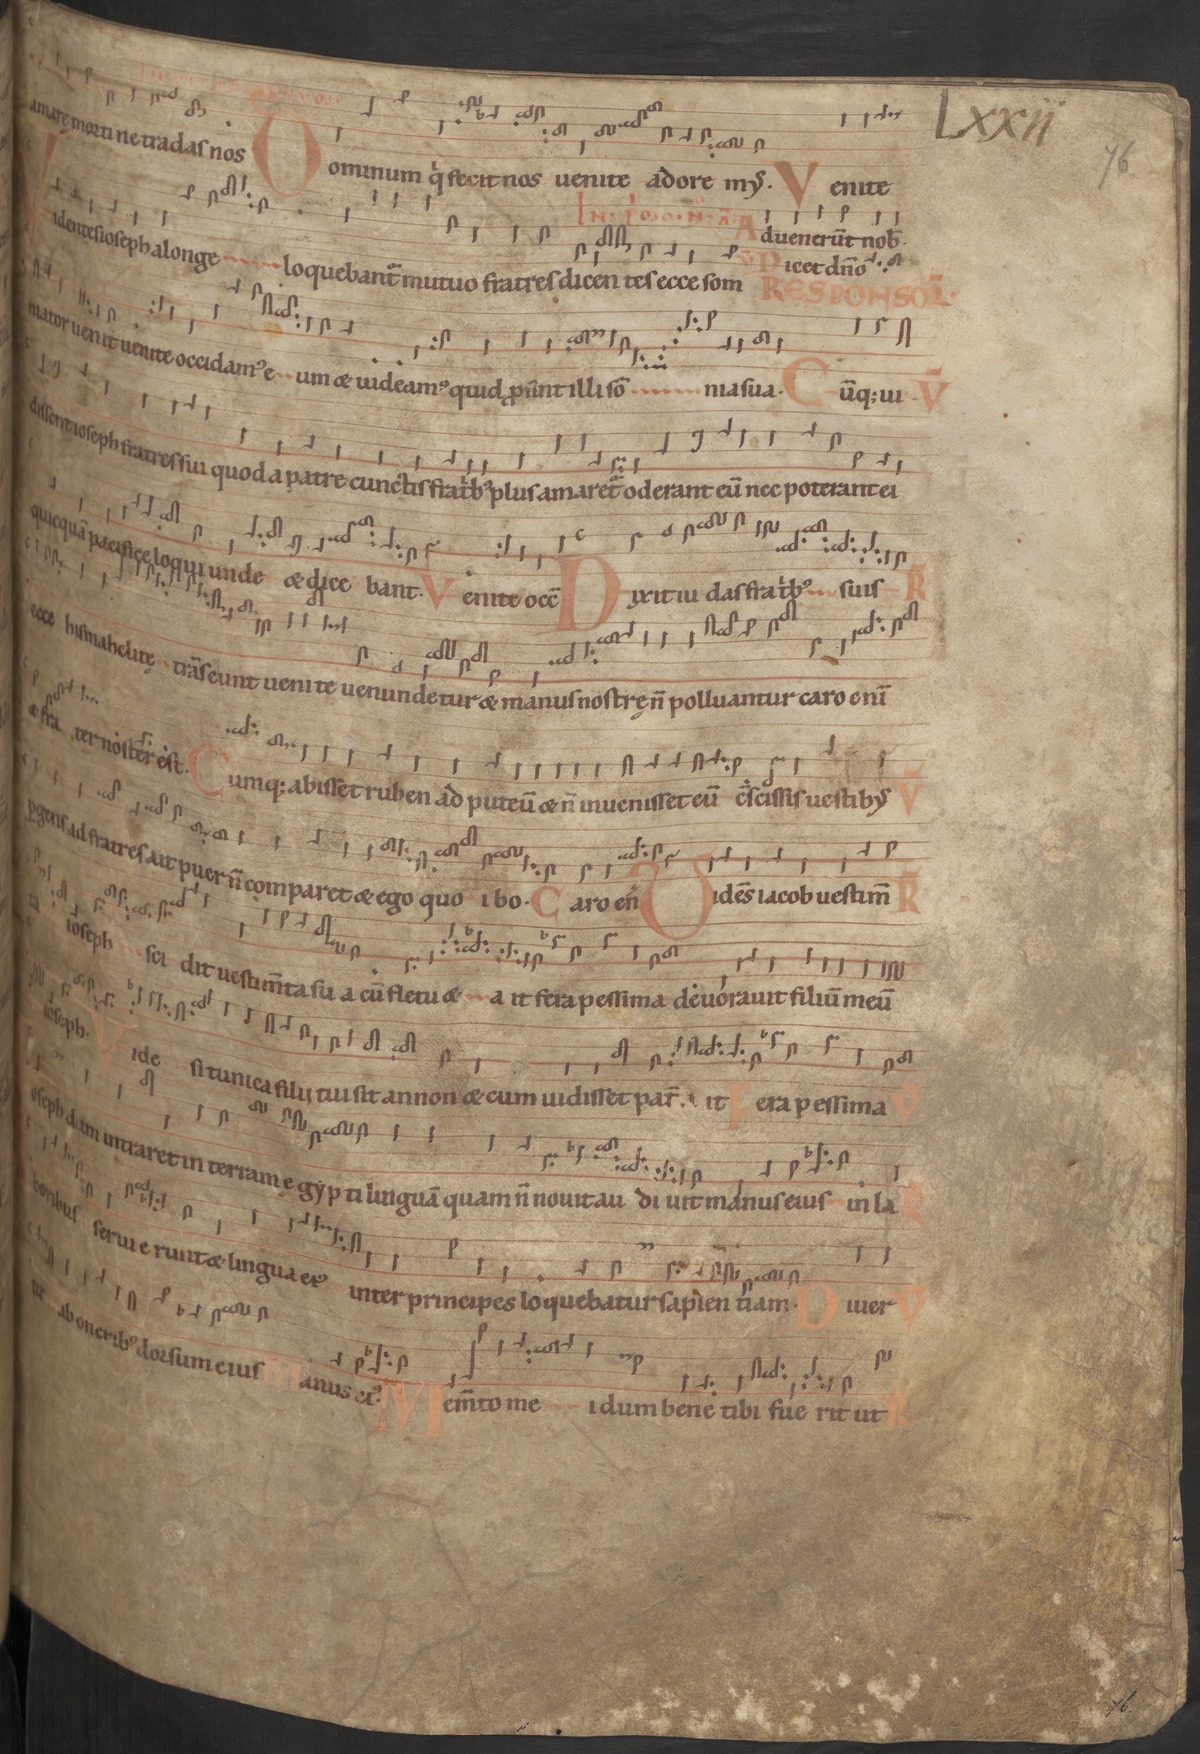 LXXII
76
amare morti ne tradas nos Dominum q̇ fecit nos venite adore mꝰ. Venite
In. i. noct. a. Aduenerūt nob̄.
Videntes ioseph a longe loquebant᷑ mutuo fratres dicentes ecce som
V Dicet dn̄o
RESPONSOR.
niator uenit uenite occidamꝰ eum & uideamꝰ quid ꝓsint illi sōmnia sua. Cūq; ui V
dissent ioseph fratres sui quod a patre cunctis fratribꝰ plus amaret᷑ oderant eū nec poterant ei
quicquā pacifice loqui unde & dicebant. Venite occ̄ Dixit iudas fratribꝰ suis R
ecce hismahelitę transeunt uenite uenundetur & manus nostrę n̄ polluantur caro eni
& frater noster est. Cumq; abisset ruben ad puteū & n̄ inuenisset eū c̄scissis uestibꝰ V
pergens ad fratres ait puer n̄ comparet & ego quo ibo. Caro en̄ Vidēs iacob uestim̄ R
ta ioseph scidit uestim̄ta sua cū fletu & ait fera pessima deuorauit filiū meū
ioseph. Vide si tunica filij tui sit an non & cum uidisset pat̄. ait Fera pessima V
ioseph dum intraret in terram egẏpti linguā quam n̄ nouit audiuit manus eius in la R
boribus seruierunt & lingua eiꝰ inter principes loquebatur sapientiam. Diuer V
tit ab oneribꝰ dorsum eius Manus eiꝰ. Mem̄to mei dum bene tibi fuerit ut R
76.